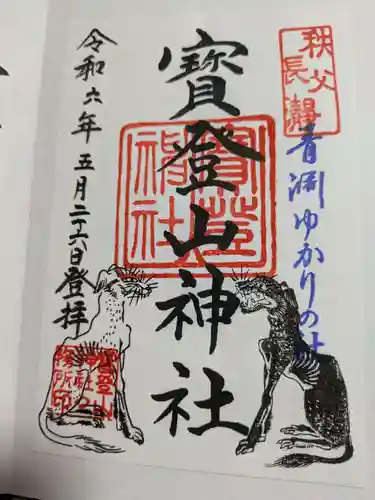 秩父
長瀞
青淵ゆかりの社
寳登山神社
寳登山
神社
令和六年五月二十六日登拝
寳登山
神社之
務所印